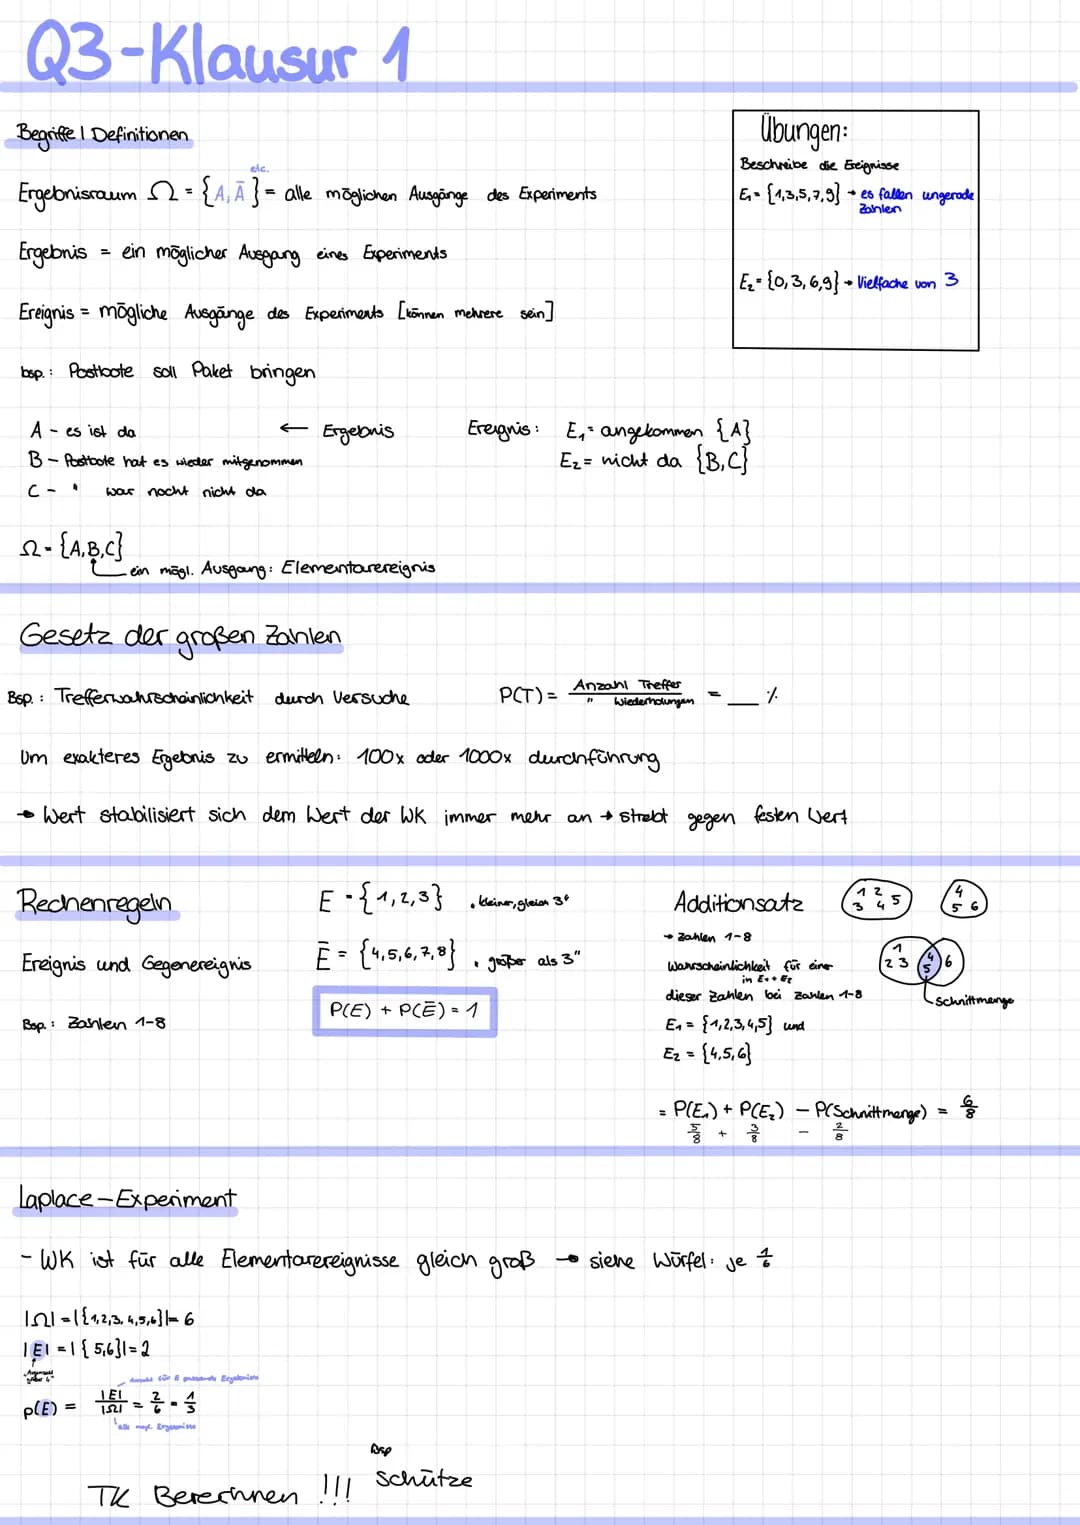 Q3-Klausur 1
Begriffe | Definitionen
etc.
Ergebnisraum Ω = {A, Ā} = alle möglichen Ausgänge des Experiments
Ergebnis = ein möglicher Ausgang eines Experiments
Ereignis = mögliche Ausgänge des Experiments [können mehrere sein]
bsp.: Postbote soll Paket bringen
A - es ist da ← Ergebnis
B - Postbote hat es wieder mitgenommen
C - " war nocht nicht da
Ereignis: E₁ = angekommen {A}
E₂ = nicht da {B,C}
Ω = {A,B,C}
ein mögl. Ausgang: Elementarereignis
Übungen:
Beschreibe die Ereignisse
E₁ = {1,3,5,7,9} → es fallen ungerade
Zahlen
E₂ = {0,3,6,9} → Vielfache von 3
Gesetz der großen Zahlen
Bsp.: Trefferwahrscheinlichkeit durch Versuche
P(T) = Anzahl Treffer / " Wiederholungen = __ %
Um exakteres Ergebnis zu ermitteln: 100x oder 1000x durchführung
→ Wert stabilisiert sich dem Wert der WK immer mehr an → strebt gegen festen Wert
Rechenregeln
Ereignis und Gegenereignis
Bsp.: Zahlen 1-8
E = {1,2,3} "kleiner, gleich 3"
Ē = {4,5,6,7,8} "größer als 3"
P(E) + P(Ē) = 1
Additionsatz
→ Zahlen 1-8
Wahrscheinlichkeit für eine
in E₁ + E₂
dieser Zahlen bei Zahlen 1-8
E₁ = {1,2,3,4,5} und
E₂ = {4,5,6}
1 2 5
3 4
4
5 6
1
2 3 4 5 6
Schnittmenge
= P(E₁) + P(E₂) - P(Schnittmenge) = 6/8
5/8 + 3/8 - 2/8
Laplace-Experiment
- WK ist für alle Elementarereignisse gleich groß → siehe Würfel: je 1/6
|Ω| = |{1,2,3,4,5,6}| = 6
|E| = |{5,6}| = 2
Anzahl für E passende Ergebnisse
p(E) = |E|/|Ω| = 2/6 = 1/3
alle mögl. Ergebnisse
Bsp
TK Berechnen !!! Schütze